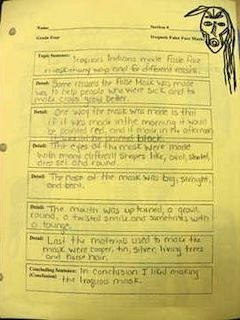 Name Section #
Grade Four Iroquois False Face Mask
Topic Sentence: Iroquois Indians made False Face
masks many ways and for different reasons.
Detail: Some reasons the False Mask was made
was to help people who were sick and to
make crops grow better.
Detail: One way the mask was made is that
if it was made in the morning it would
be painted red, and if made in the afternoon
it would be painted black.
Detail: The eyes of the mask were made
with many different shapes like, oval, slanted,
deep set and round.
Detail: The nose of the mask was big, straight,
and bent.
Detail: The mouth was upturned, a growl,
round, a twisted smile and sometimes with
a tounge.
Detail: Last the materials used to make the
mask were cooper, tin, silver, living trees
and horse hair.
Concluding Sentence: In conclusion I liked making
(Conclusion) the Iroquois mask.